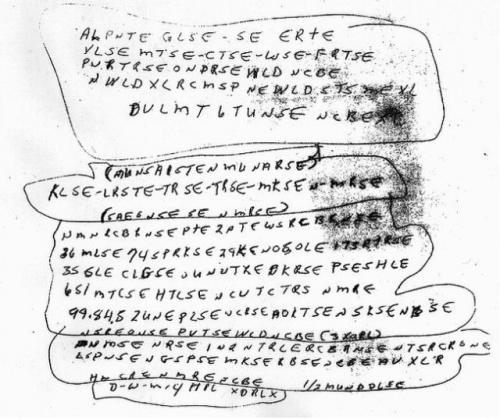 ALPNTE GLSE-SE ERTE
VLSE MTSE-CTSE-WSE-FRTSE
PNRTRSEONDRSEWLD NCBE
NWLDXLRCMSP NEWLDSTSMEXL
DULMT6TUNSE NCBEXC
(MUNSARSTENMUNARSE)
KLSE-LRSTE-TRSE-TRSE-MKSEN-MRSE
(SAEGNSESE NMRSE)
NMNRCBRNSEPTE2PTEWSRCBRNSE
36 MLSE 74SPRKSE 29KENOSOLE 173RTRSE
35 GLE CLGSE OUNUTRE DKRSE PSESHLE
651 MTCSE HTLSE NCUTCTRS NMRE
99.84.5 ZUNEPLSE NCRSE AOLTSENSKSENBSE
NSREONSE PVTSEWLDNCBE (3XORL)
NMSE NRSE INRNTRLERCBRNSE NTSRCRBNE
LSPNSENGSPSE MKSERBSE NCBE AUXLR
HMCRE NMRE NCBE 1/2 MUNDDLSE
D-W-M-4 MIL XDRLX